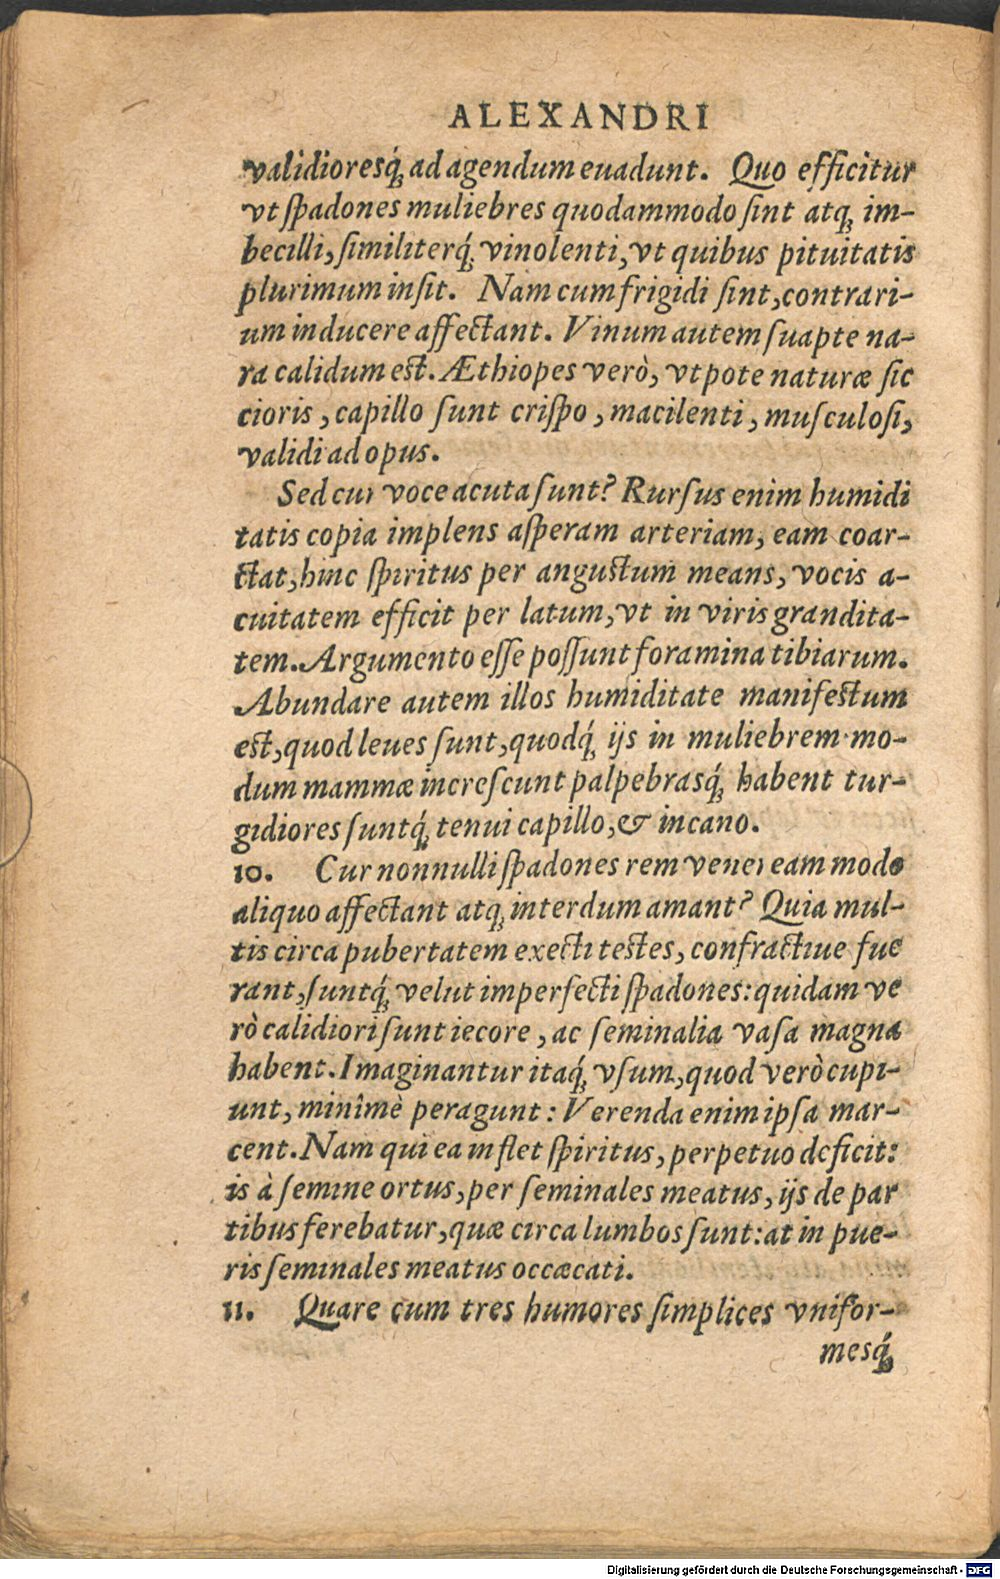 ALEXANDRI
validioresq́; ad agendum euadunt. Quo efficitur
vt ſpadones muliebres quodammodo ſint atq; im-
becilli, ſimiliterq́; vinolenti, vt quibus pituitatis
plurimum inſit. Nam cum frigidi ſint, contrari-
um inducere affectant. Vinum autem ſuapte na-
ra calidum est. Æthiopes verò, vtpote naturæ ſic
cioris, capillo ſunt criſpo, macilenti, muſculoſi,
validi ad opus.
Sed cur voce acuta ſunt? Rurſus enim humidi
tatis copia implens aſperam arteriam, eam coar-
ctat, hinc ſpiritus per angustum means, vocis a-
cuitatem efficit per latum, vt in viris grandita-
tem. Argumento eſſe poſſunt foramina tibiarum.
Abundare autem illos humiditate manifestum
est, quod leues ſunt, quodq́; ijs in muliebrem mo-
dum mammæ increſcunt palpebrasq́; habent tur-
gidiores ſuntq́; tenui capillo, & incano.
10. Cur nonnulli ſpadones rem veneream modo
aliquo affectant atq; interdum amant? Quia mul-
tis circa pubertatem execti testes, confractiue fue
rant, ſuntq́; velut imperfecti ſpadones: quidam ve
rò calidiori ſunt iecore, ac ſeminalia vaſa magna
habent. Imaginantur itaq́; vſum, quod verò cupi-
unt, minimè peragunt: Verenda enim ipſa mar-
cent. Nam qui ea inflet ſpiritus, perpetuo deficit:
is à ſemine ortus, per ſeminales meatus, ijs de par
tibus ferebatur, quæ circa lumbos ſunt: at in pue-
ris ſeminales meatus occæcati.
11. Quare cum tres humores ſimplices vnifor-
mesq́;
Digitalisierung gefördert durch die Deutsche Forschungsgemeinschaft - DFG